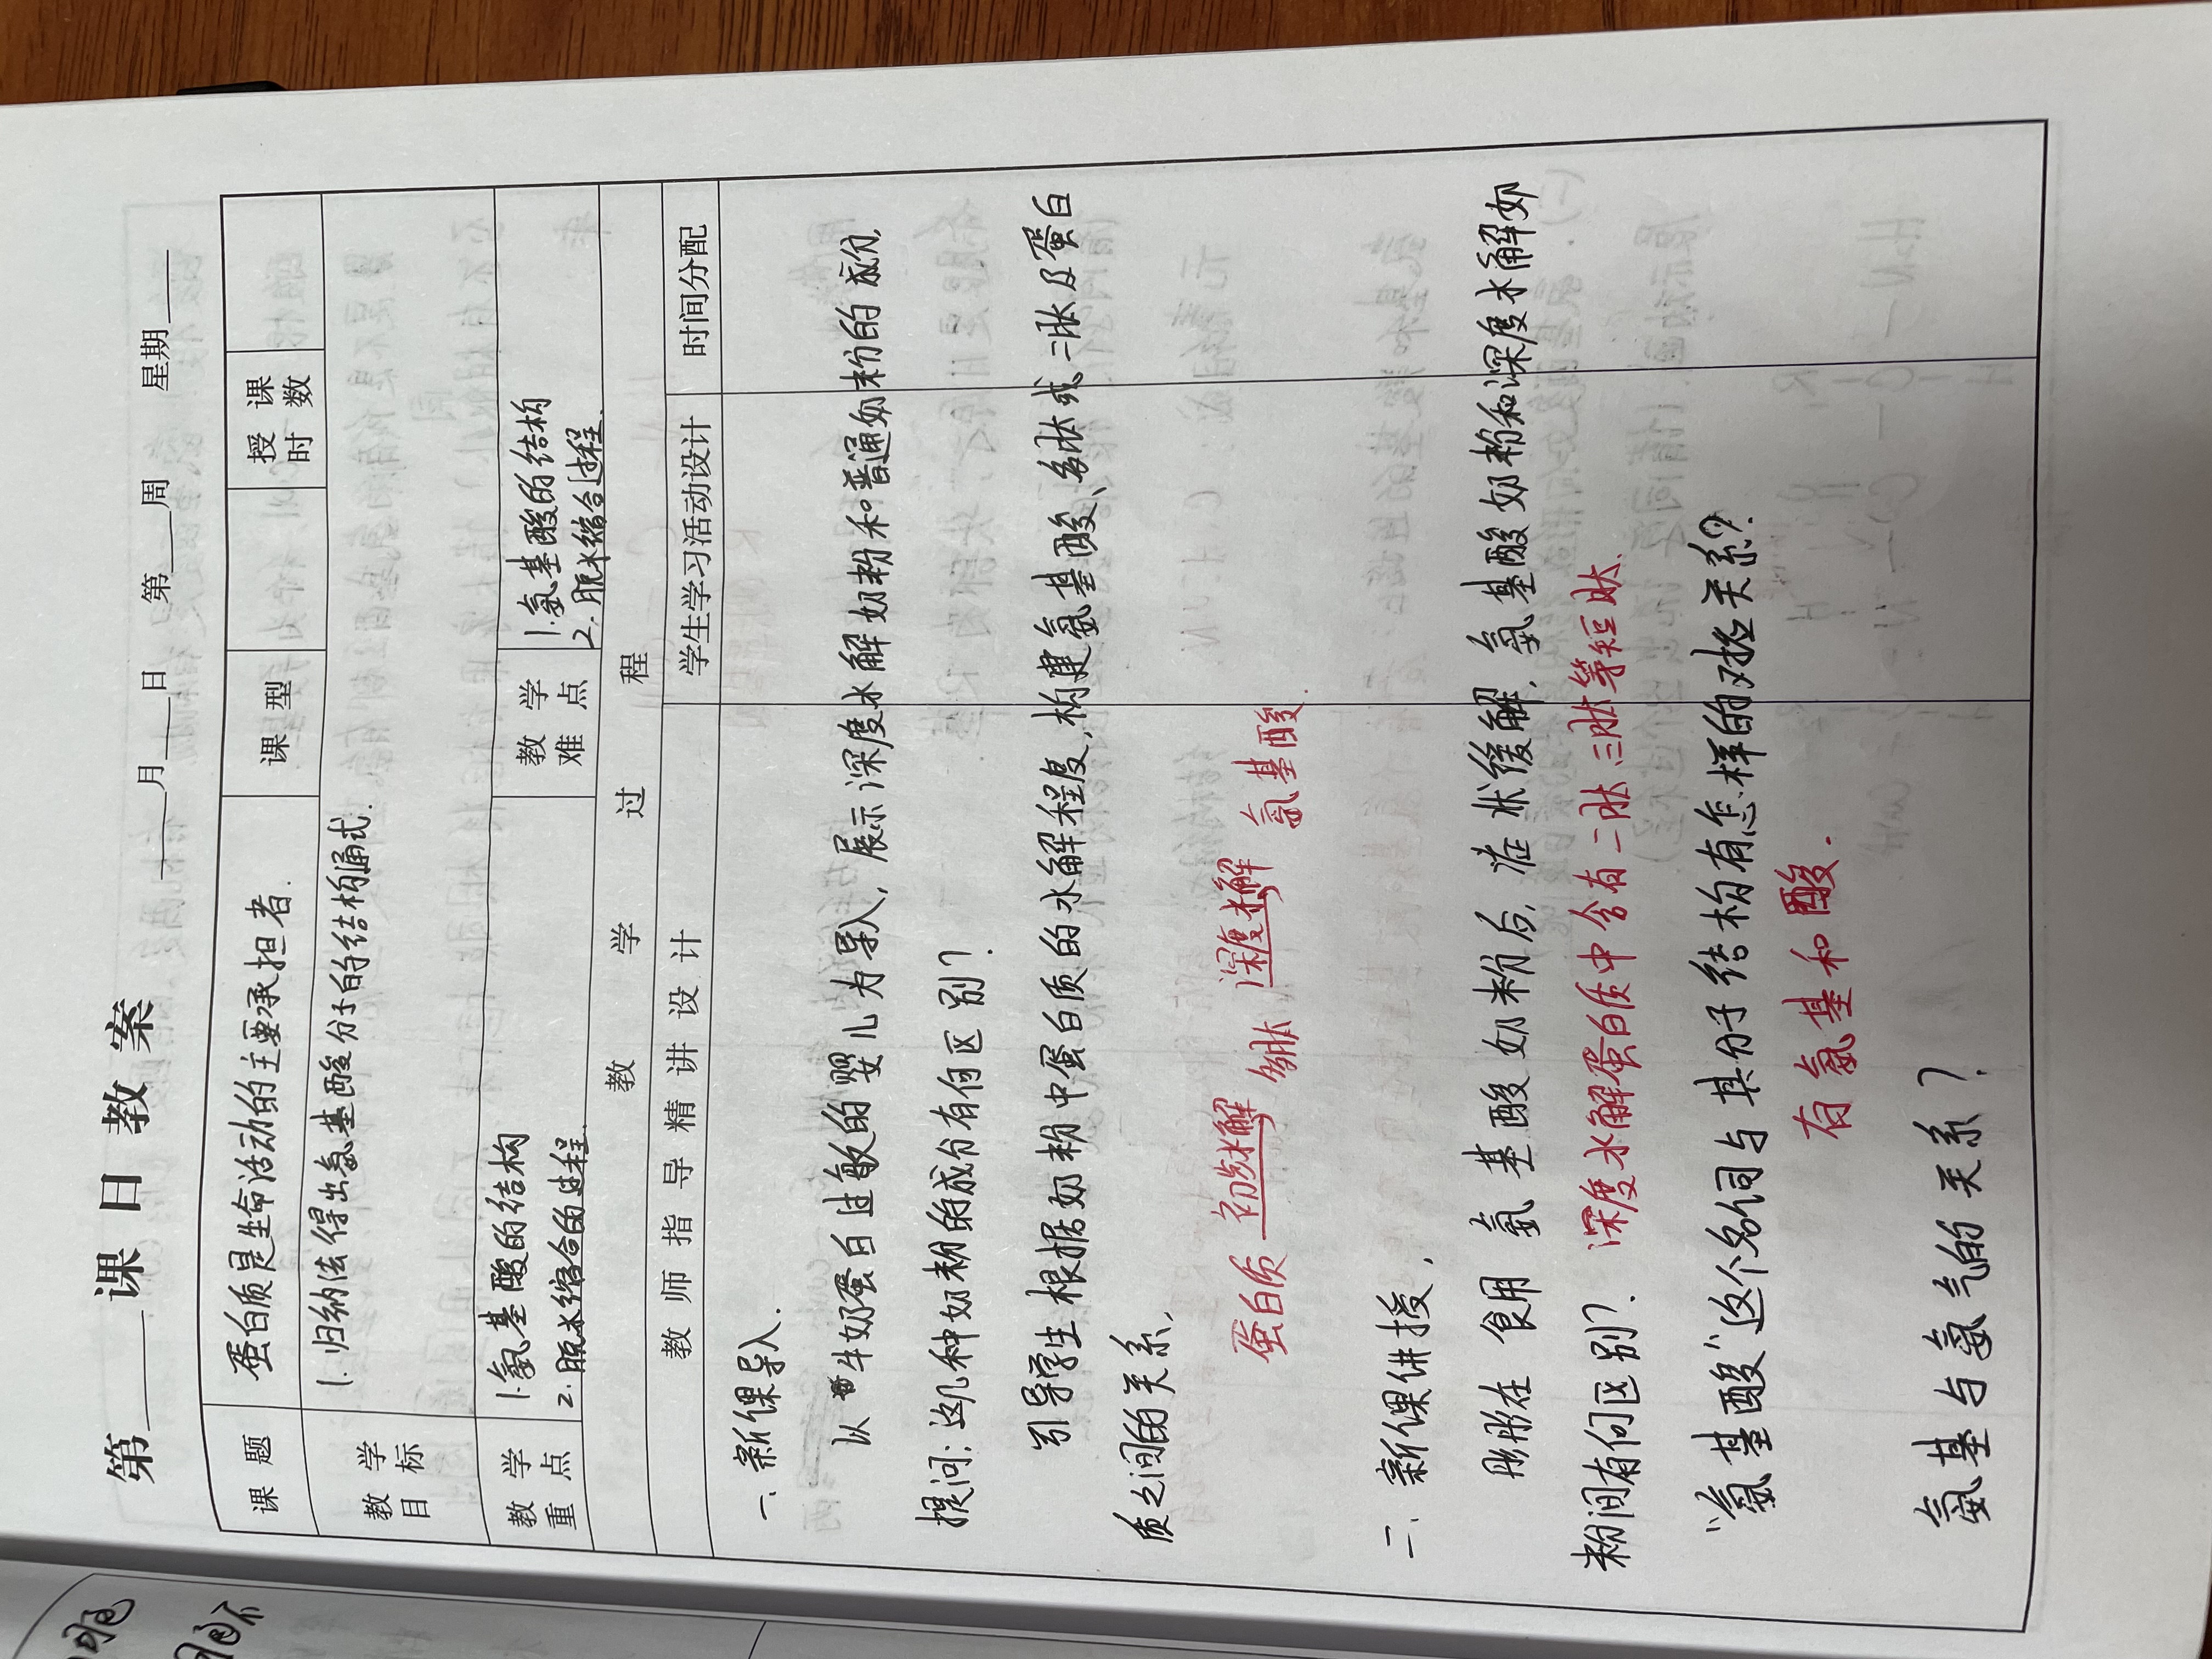 第____课日教案
____月____日 第____周 星期____
课题 蛋白质是生命活动的主要承担者. 课型 授课时数
教学目标 1. 归纳法得出氨基酸分子的结构通式.
教学重点 1.氨基酸的结构
2.脱水缩合的过程.
教学难点 1.氨基酸的结构
2.脱水缩合过程.
教学过程
教师指导精讲设计 学生学习活动设计 时间分配
一、新课导入.
以牛奶蛋白过敏的婴儿为导入, 展示深度水解奶粉和普通奶粉的成份.
提问:这几种奶粉的成份有何区别?
引导学生根据奶粉中蛋白质的水解程度,构建氨基酸、多肽或二肽及蛋白
质之间的关系,
蛋白质 初步水解 多肽 深度水解 氨基酸
二、新课讲授,
彤彤在食用氨基酸奶粉后, 症状缓解, 氨基酸奶粉和深度水解奶
粉间有何区别?
深度水解蛋白质中含有二肽三肽等短肽.
“氨基酸”这个名词与其分子结构有怎样的对应关系?
有氨基和酸.
氨基与氨气的关系?